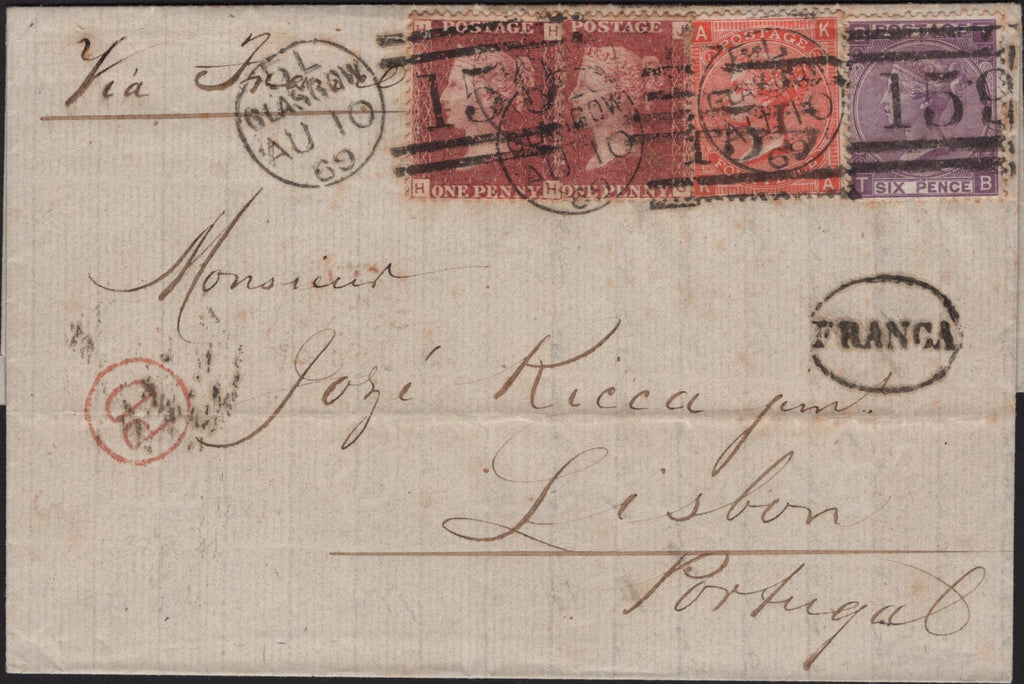 Via
5L
GLASGOW
AU 10
69
POSTAGE
H
ONE PENNY
H
POSTAGE
H
ONE PENNY
GLASGOW
AU 10
159
A
POSTAGE
K
K
A
GLASGOW
69
159
T
SIX PENCE
B
Monsieur
FRANCA
PD
Jozé Ricca jun.
Lisbon
Portugal